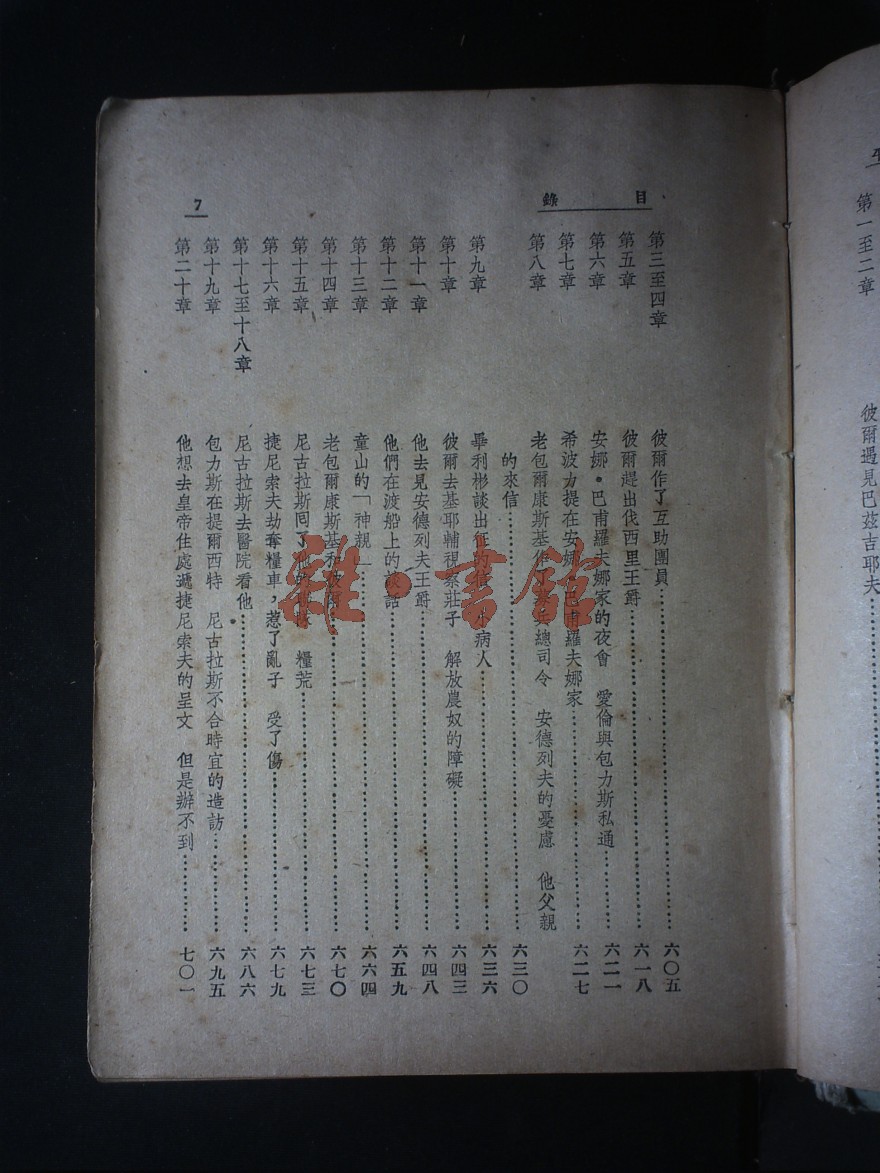 第一至二章 彼爾遇見巴茲吉耶夫
目錄
7
第三至四章 彼爾作了互助團員 六〇五
第五章 彼爾趕出伐西里王爵 六一八
第六章 安娜·巴甫羅夫娜家的夜會 愛倫與包力斯私通 六二一
第七章 希波力提在安娜·巴甫羅夫娜家 六二七
第八章 老包爾康斯基作了 總司令 安德列夫的憂慮 他父親
的來信 六三〇
第九章 畢利彬談出征的信 小病人 六三六
第十章 彼爾去基耶輔視察莊子 解放農奴的障礙 六四三
第十一章 他去見安德列夫王爵 六四八
第十二章 他們在渡船上的談話 六五九
第十三章 童山的「神親」 六六四
第十四章 老包爾康斯基和彼爾 六七〇
第十五章 尼古拉斯回了 糧荒 六七三
第十六章 捷尼索夫劫奪糧車,惹了亂子 受了傷 六七九
第十七至十八章 尼古拉斯去醫院看他 六八六
第十九章 包力斯在提爾西特 尼古拉斯不合時宜的造訪 六九五
第二十章 他想去皇帝住處遞捷尼索夫的呈文 但是辦不到 七〇一
雜·書館